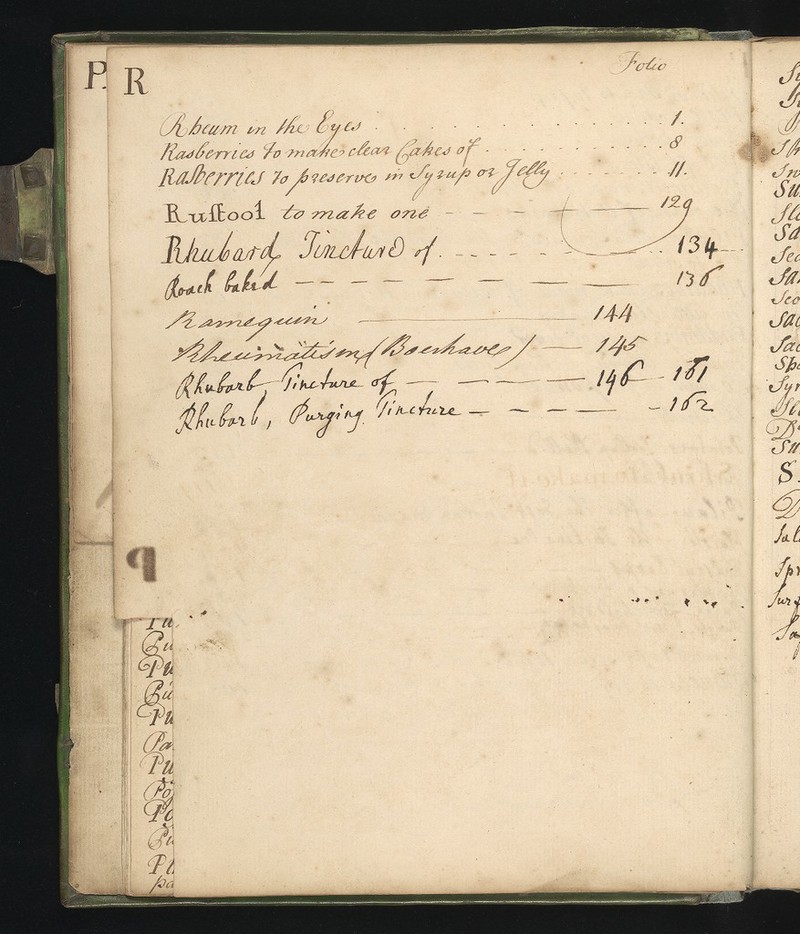 P. R
Folio
Rheum in the Eyes . . . . . . . . . . . . . . . . . 1.
Rasberries to make clear Cakes of . . . . . . . . . . . 8
Rasberries to preserve in Syrup or Jelly . . . . . . . 11.
Rustool to make one - - - — — 129
Rhubard, Tincture of . - - - - - — . . 134
Roach baked — — — — — — — 136
Ramequin ——— 144
Rheumatism (Boerhave) — 145
Rhubarb, Tincture of — — — — 146 — 161
Rhubarb, Purging Tincture — — — — 162
P
Pu
Pu
Pu
Pu
Pu
Pa
Pu
Po
Po
Pu
Pl
pa